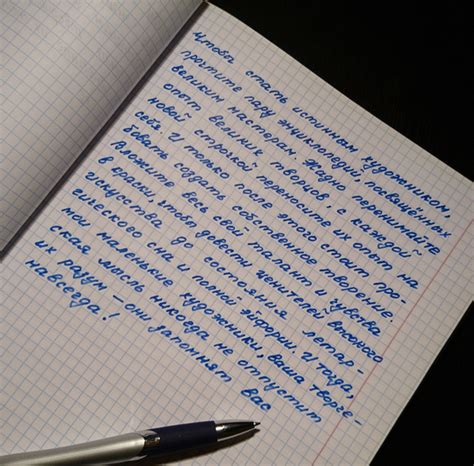 Чтобы стать истинным художником,
прочтите пару энциклопедий, посвящённых
великим мастерам. Жадно перенимайте
опыт великих творцов, с каждой
новой строчкой переносите их опыт на
себя. И только после этого стоит про-
бовать создать собственное творение.
Вложите весь свой талант и чувство
в краски, чтобы довести ценителей высокого
искусства до состояния летар-
гического сна и полной эйфории. И тогда,
мои маленькие художники, ваша творче-
ская мысль никогда не отпустит
их разум - они запомнят вас
навсегда!